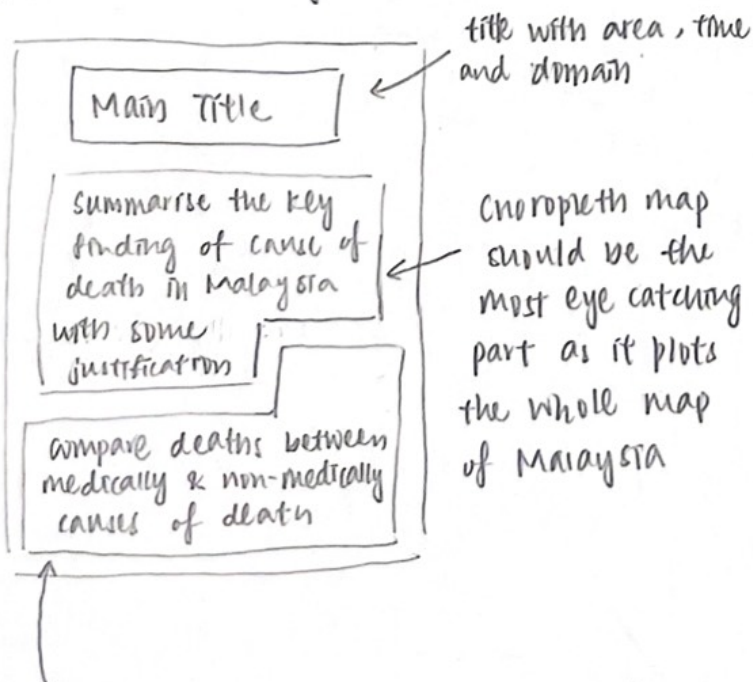 title with area, time
and domain
Main Title
summarise the key
finding of cause of
death in Malaysia
with some
justification
choropleth map
should be the
most eye catching
part as it plots
the whole map
of Malaysia
compare deaths between
medically & non-medically
causes of death